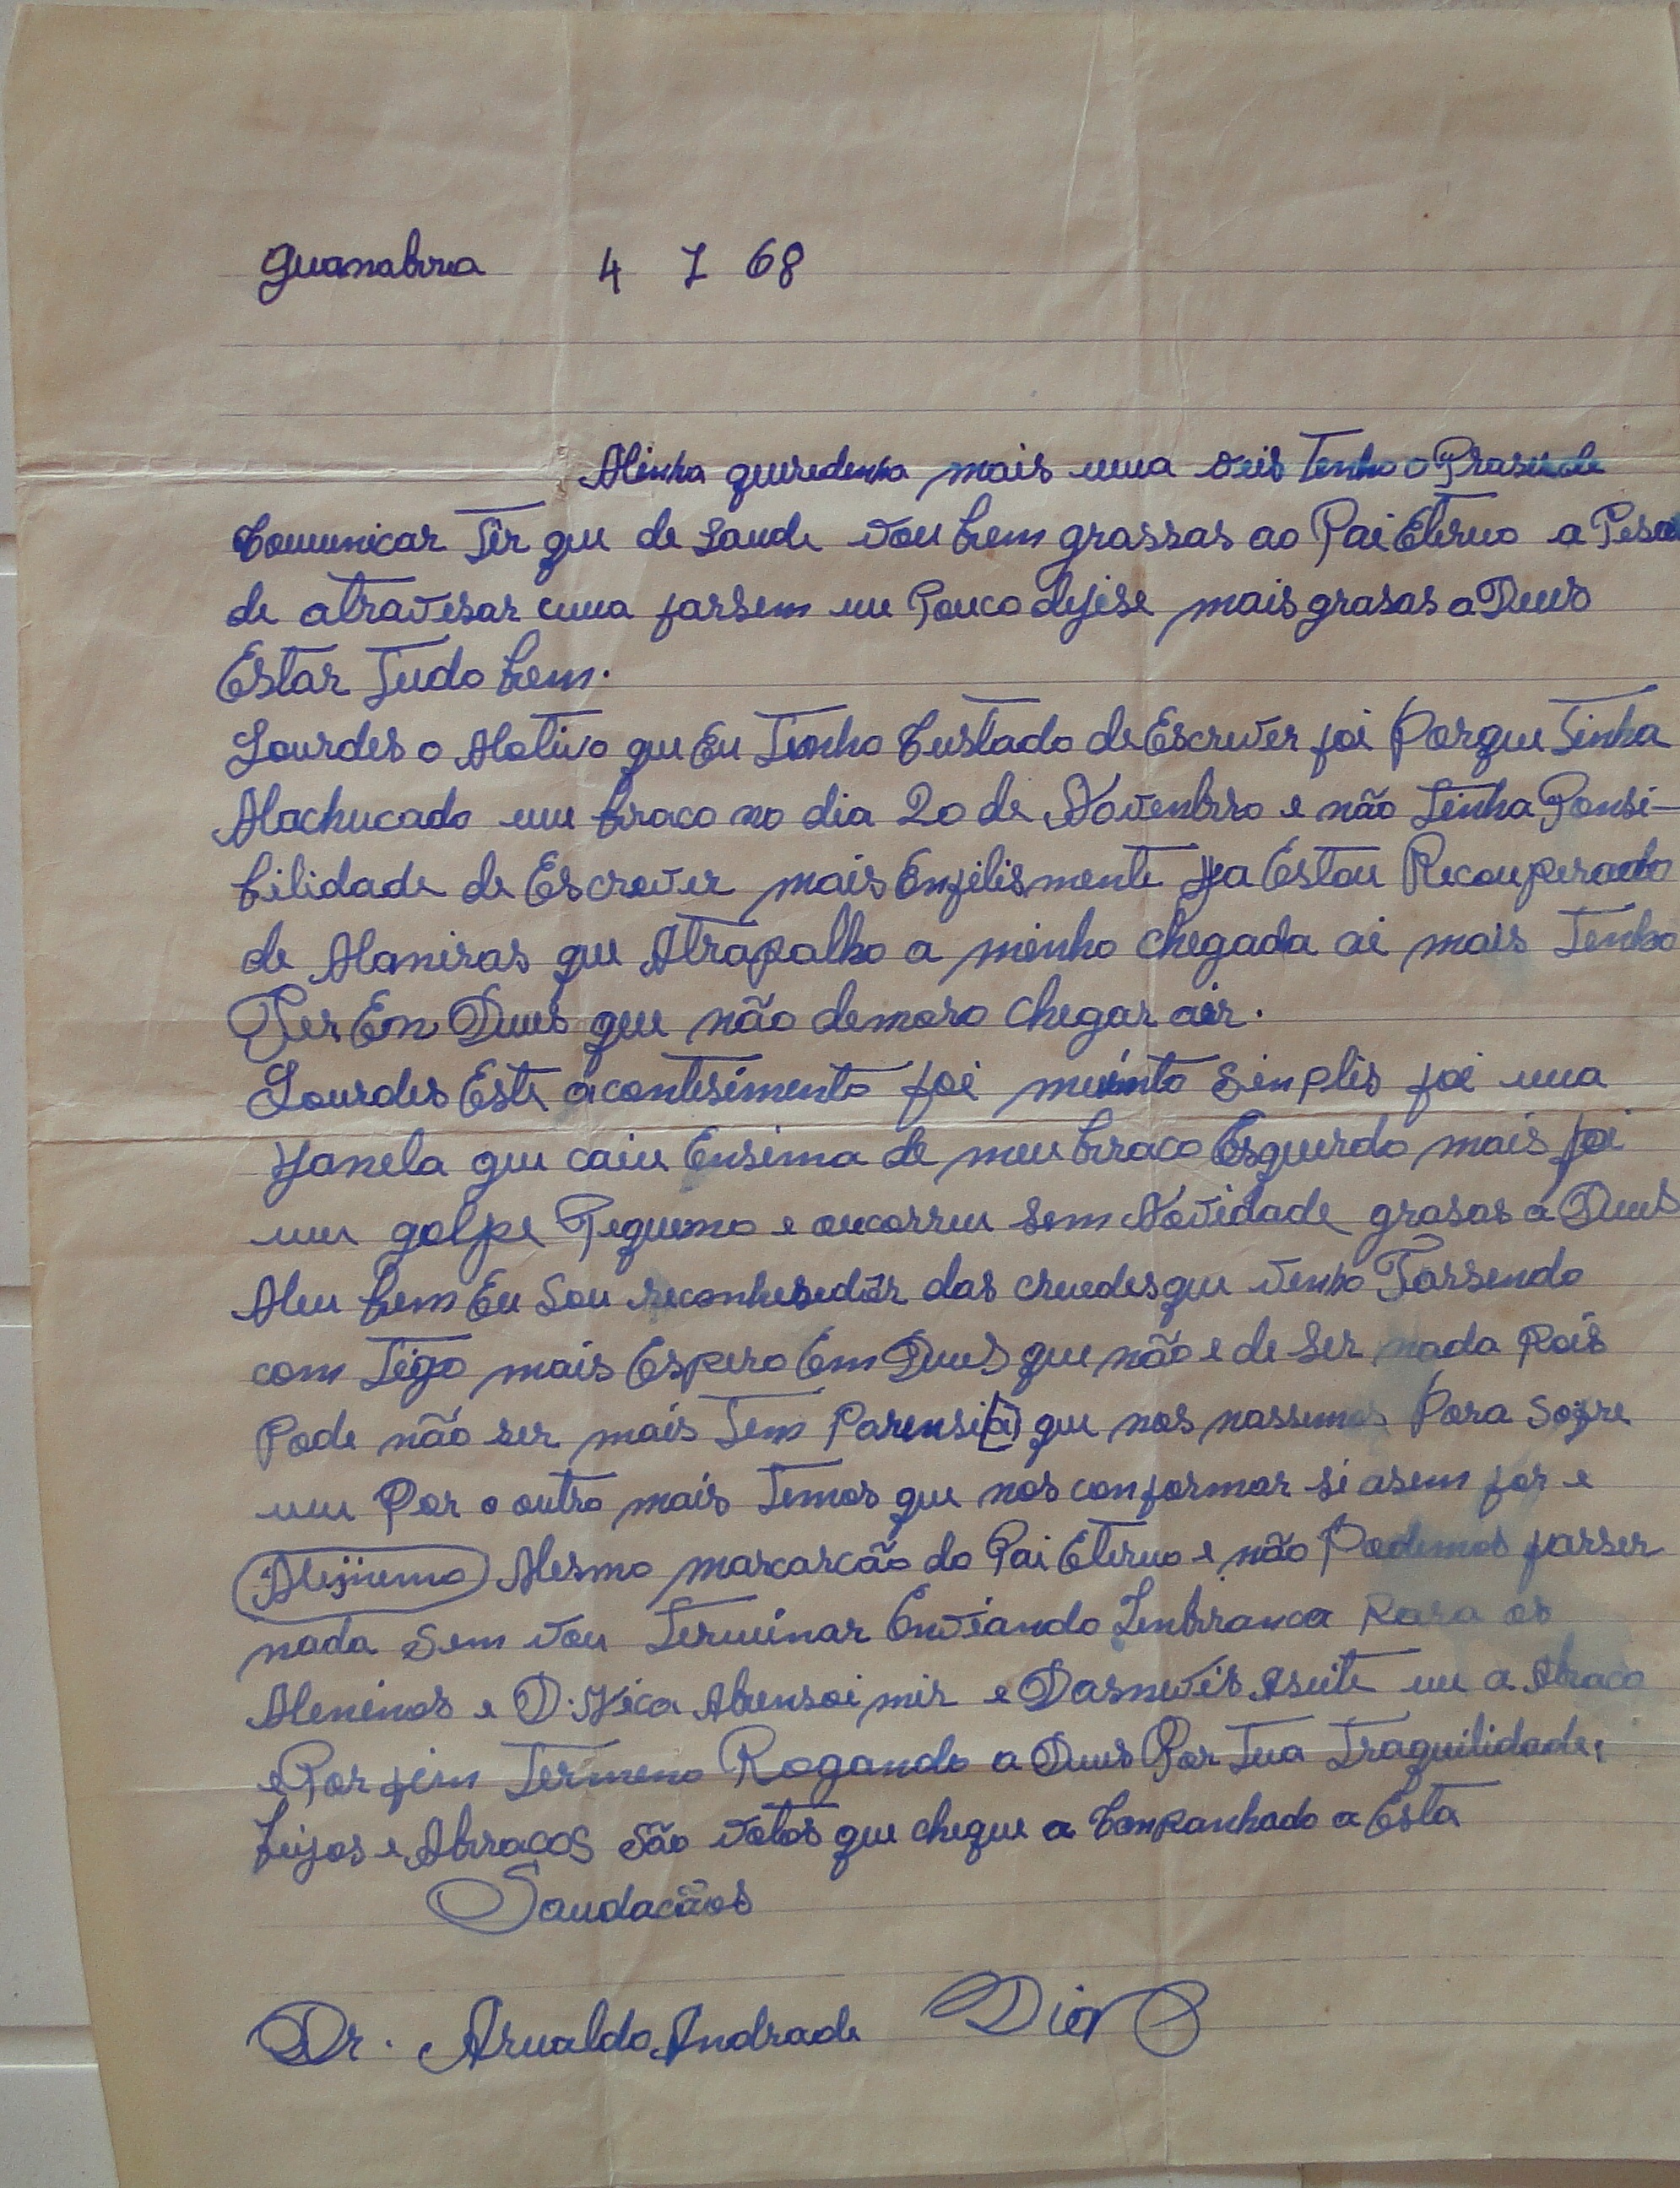 Guanabra 4 1 68
Minha queredinha mais uma veis Tenho o Praser de
Comunicar Ter que de Saude vou bem grassas ao Pai Eterno a Pesar
de atravesar uma farsem um Pouco dificie mais grasas a Deus
Estar Tudo bem.
Lourdes o Motivo que Eu Tenho Custado de Escrever foi Porque Tinha
Machucado um braco no dia 20 de Novenbro e não Tinha Ponsi-
bilidade de Escrever mais Enfelismente Ja Estou Recouperado
de Maniras que Atrapalho a minho chegada ai mais Tenho
Fer Em Deus que não demoro chegar air.
Lourdes Este acontesimento foi muinto Sinplis foi uma
Janela que caiu Ensima de meu braco Esquerdo mais foi
um golpe Pequeno e oucorreu Sem Novidade grasas a Deus
Meu bem Eu Sou reconhesedor das que venho Torsendo
com Tigo mais Espero Em Deus que não e de Ser nada Pois
Pode não ser mais Tem Parensi(a) que nos nassemos Para Sofre
um Por o outro mais Temos que nos conformar si asem for e
Mesmo marcarcão do Pai Eterno e não Podemos farser
nada Sem vou Terminar Enviando Lenbranca Para os
Meninos e D. Abensoi mir e Dasnevis Aseite um a Abraco
e Por fim Termeno Rogando a Deus Por Tua Traquilidade,
beijos e Abracos São votos que chegue a Conpanhado a Esta
Saudacãos
Dr. Arnaldo Andrade